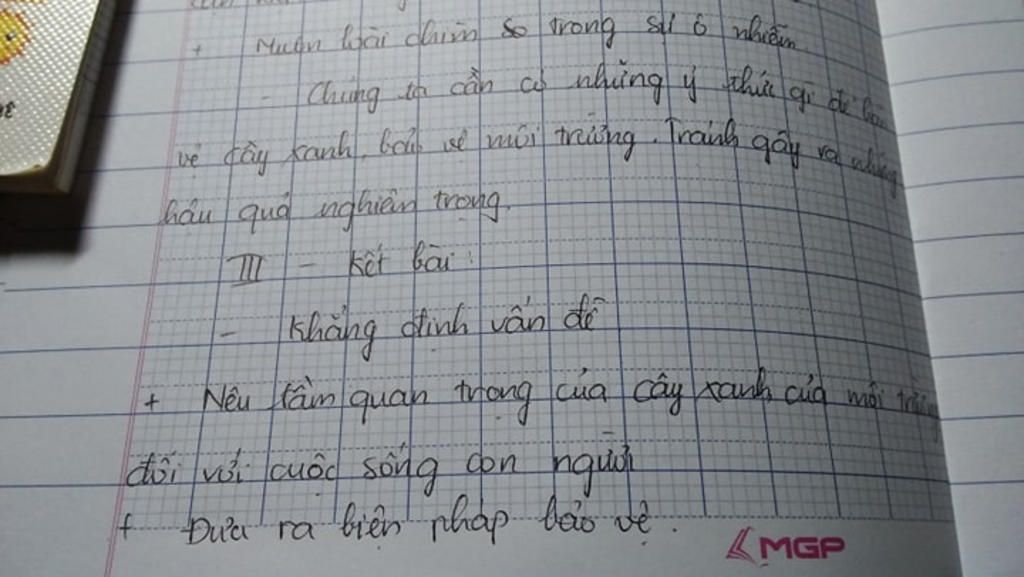 + Muôn loài chim sơ trong sự ô nhiễm
- Chúng ta cần có những ý thức gì để bảo
vệ cây xanh, bảo vệ môi trường. Tránh gây ra những
hậu quả nghiêm trọng.
III - Kết bài:
- Khẳng định vấn đề
+ Nêu tầm quan trọng của cây xanh của môi trường
đối với cuộc sống con người
+ Đưa ra biện pháp bảo vệ.
MGP